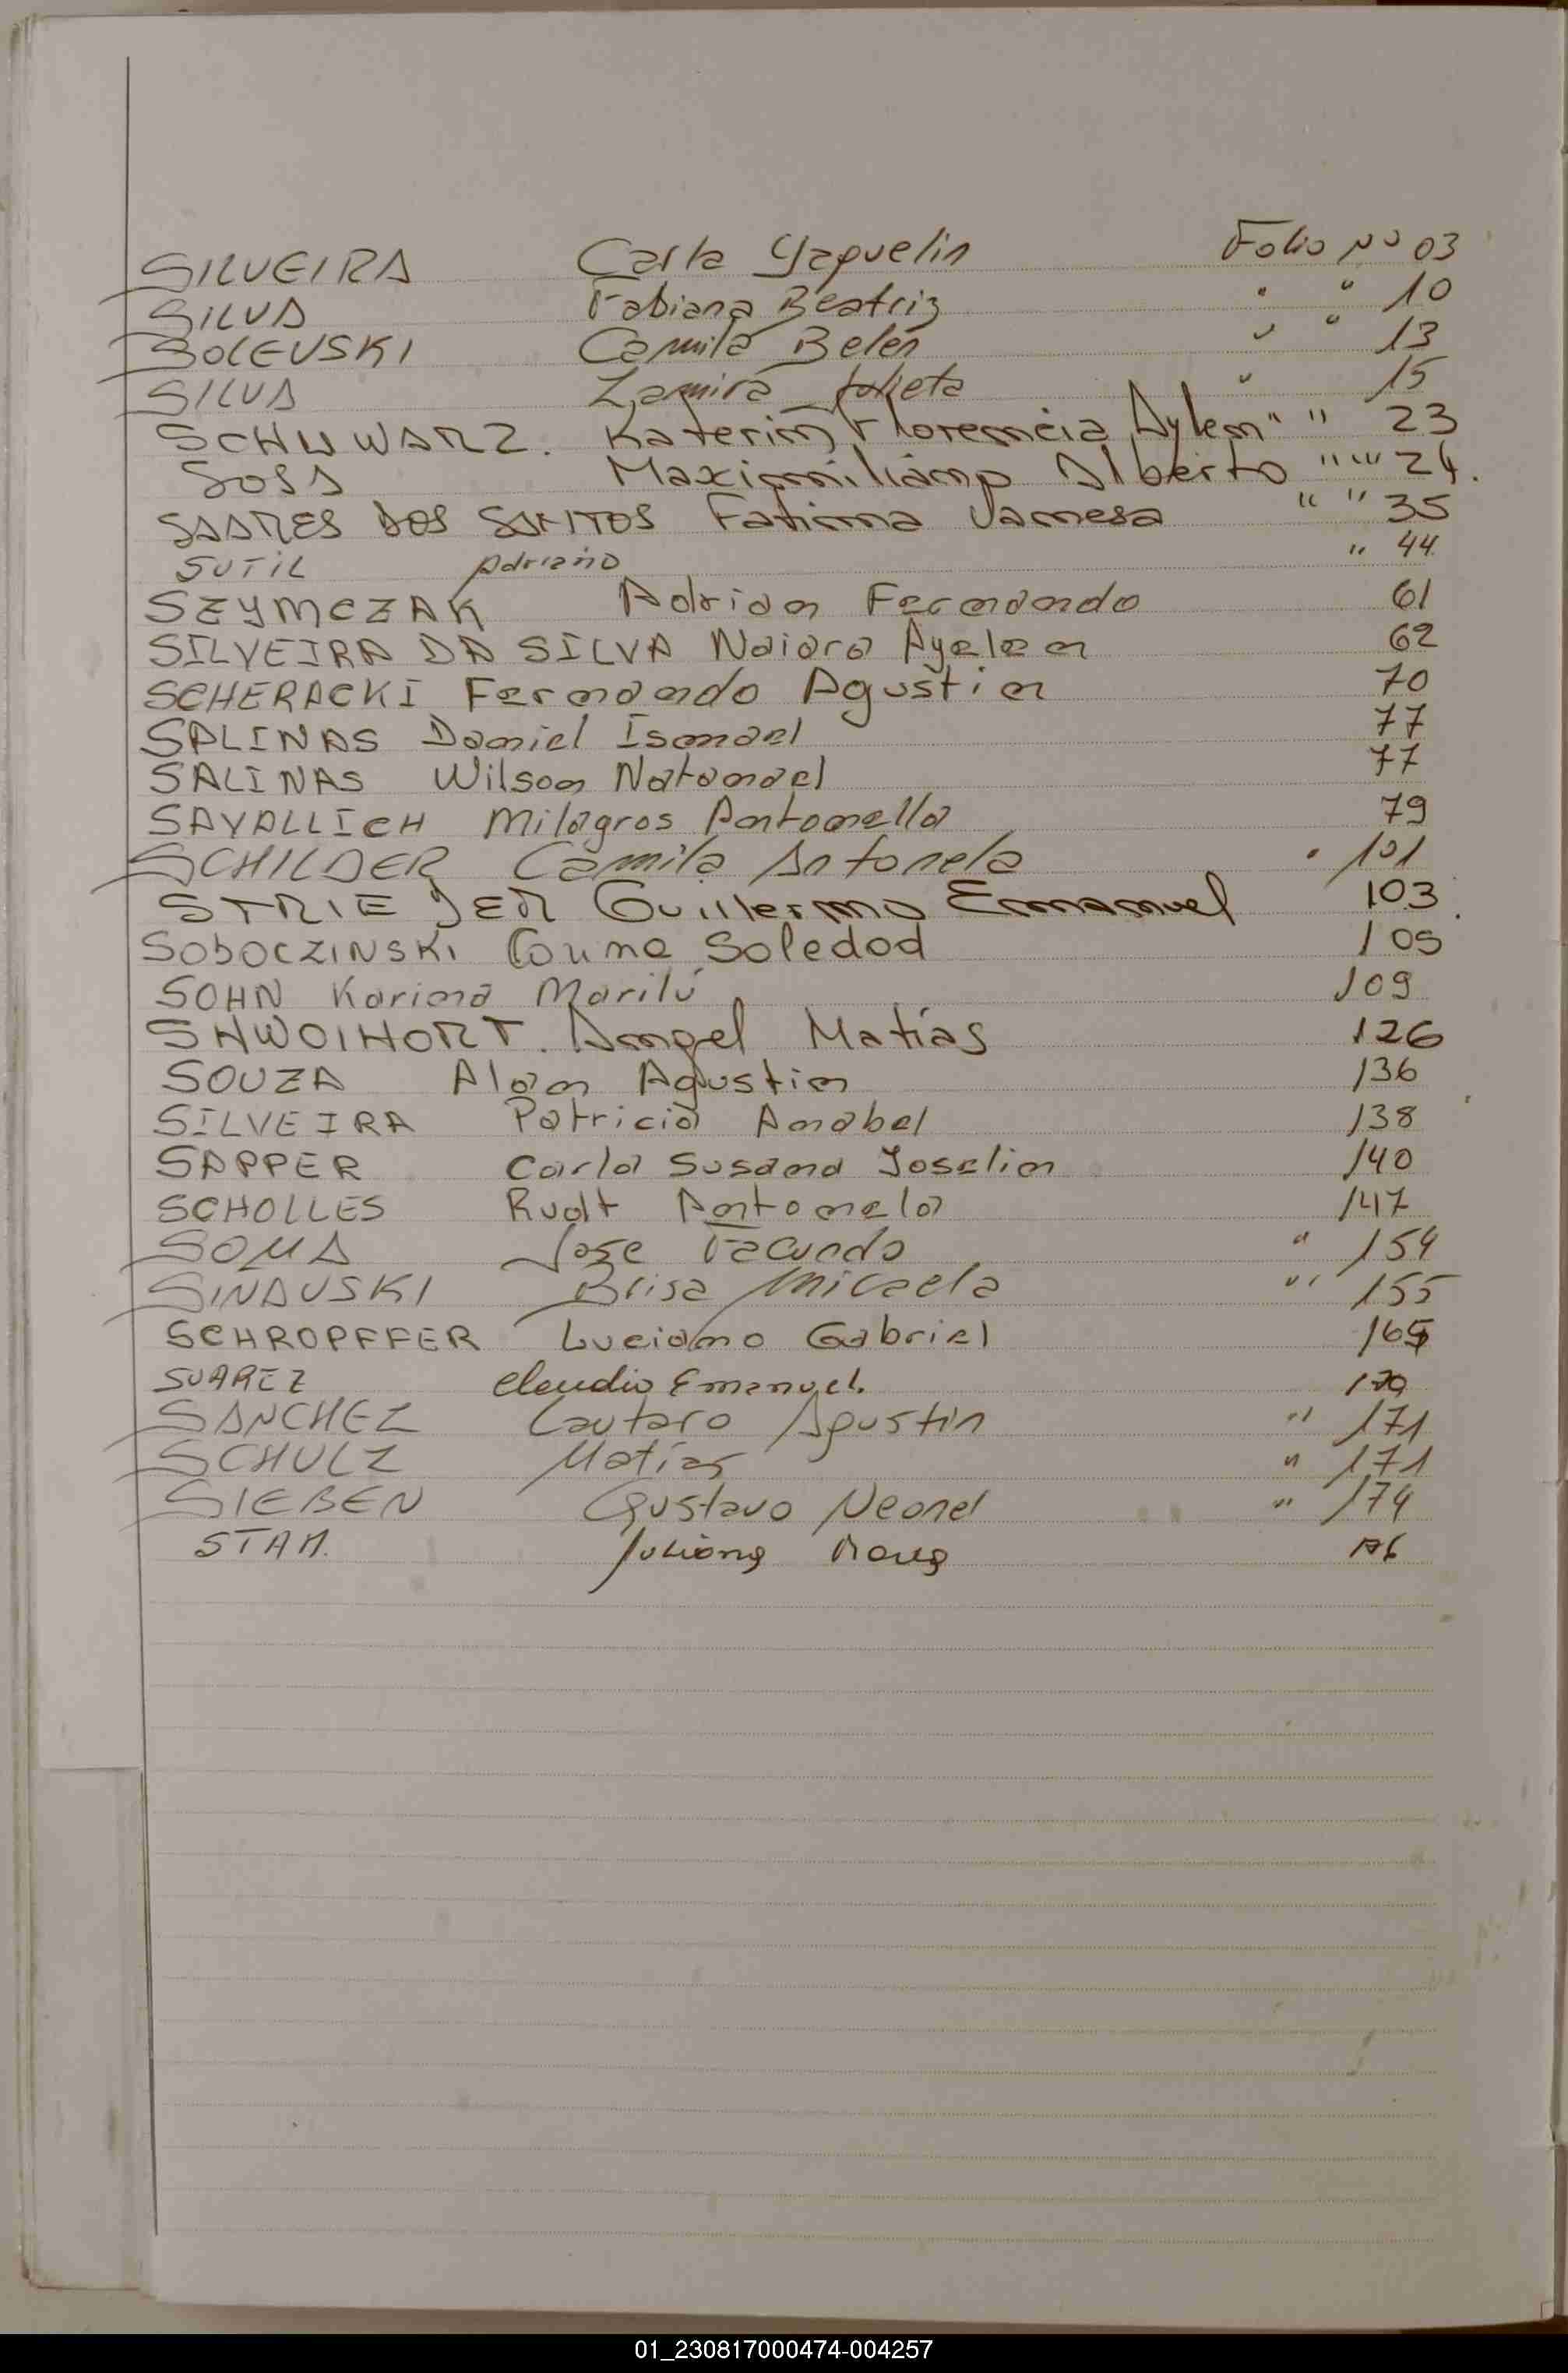 SILVEIRA Carla Yaquelin Folio Nº 03
SILVA Fabiana Beatriz " " 10
SOLEVSKI Camila Belén " " 13
SILVA Zamira Julieta " 15
SCHUWARZ. Katerin Florencia Aylen " " 23
SOSA Maximiliano Alberto " " " 24.
SOARES DOS SANTOS Fatima Vanesa " " 35
SUTIL Adriano " 44
SZYMCZAK Adrian Fernando 61
SILVEIRA DA SILVA Naiara Ayelen 62
SCHERACKI Fernando Agustin 70
SALINAS Daniel Ismael 77
SALINAS Wilson Natanael 77
SAVALLICH Milagros Antonella 79
SCHILDER Camila Antonela " 101
STRIEDER Guillermo Emmanuel 103.
SOBOCZINSKI Corina Soledad 105
SOHN Karina Marilú 109
SHWOIHORT. Angel Matías 126
SOUZA Alan Agustin 136
SILVEIRA Patricia Anabel 138
SAPPER Carla Susana Joselin 140
SCHOLLES Rudt Antonela 147
SOMA Jose Facundo " 154
SINAUSKI Brisa Micaela " 155
SCHROPFFER Luciano Gabriel 165
SUAREZ Claudio Emanuel. 170
SANCHEZ Lautaro Agustin " 171
SCHULZ Matías " 171
SIEBEN Gustavo Neonel " 174
STAM. Juliana
01_230817000474-004257